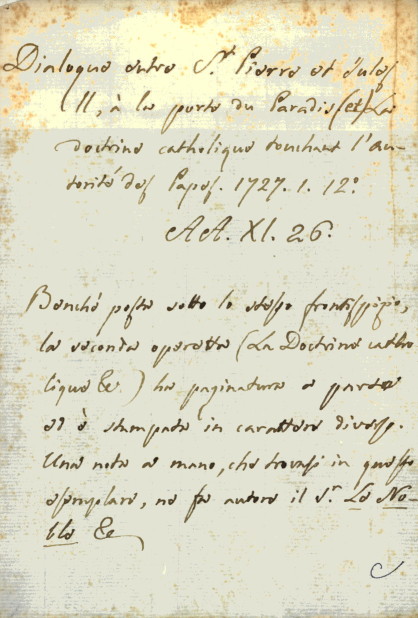 Dialogue entre S.t Pierre et Jules
II, à la porte du Paradis (et) La
doctrine catholique touchant l'au-
torité des Papes. 1727. 1. 12.°
AA. XI. 26.
Benché posta sotto lo stesso frontispizio,
la seconda operetta (La Doctrine catho
lique &c.) ha paginatura a parte
ed è stampata in carattere diverso.
Una nota a mano, che trovasi in questo
esemplare, ne fa autore il S.r Le No-
ble &c